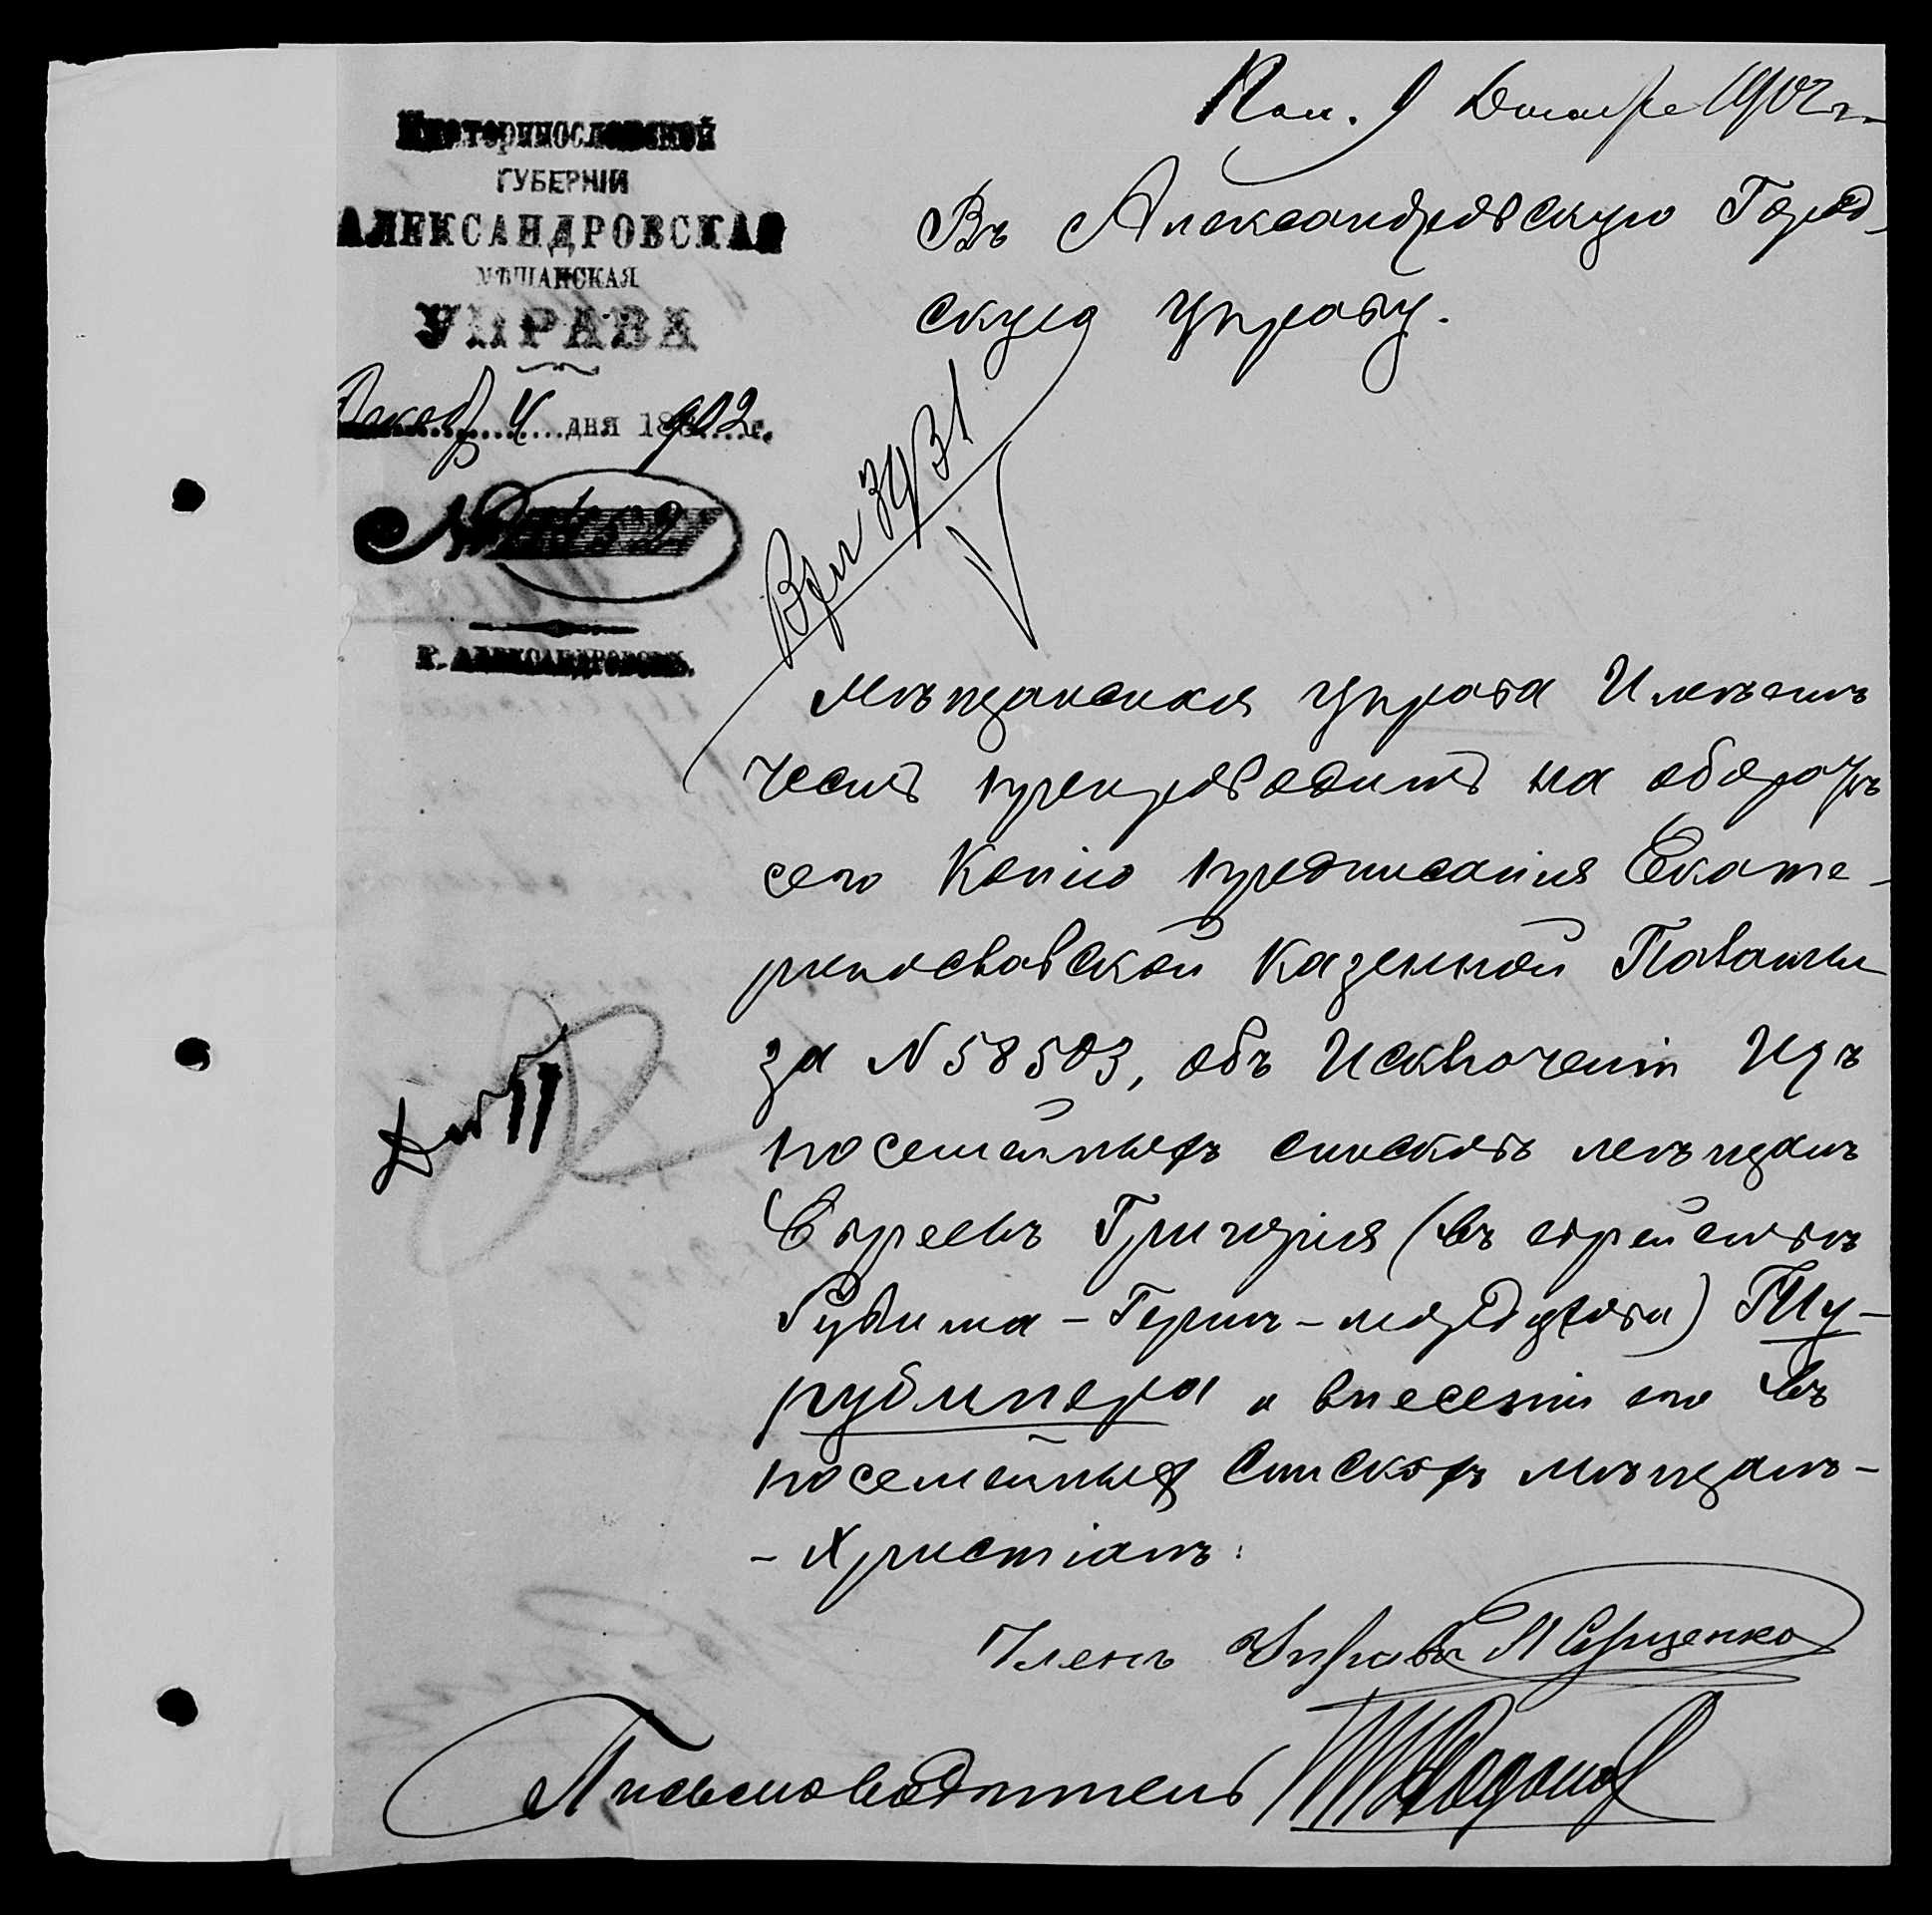 Пол. 9 Декабря 1902 г.
Екатеринославской
ГУБЕРНІИ
АЛЕКСАНДРОВСКАЯ
МѢЩАНСКАЯ
УПРАВА
Декаб. 4 дня 18 902 г.
№ 1452
Г. АЛЕКСАНДРОВСКЪ.
Въ Александровскую Город-
скую управу.
3931
Мѣщанская управа Имѣетъ
честь препроводить на оборотѣ
сего Копію предписанія Екате-
ринославской Казенной Палаты
за N 58503, объ Исключеніи Изъ
посемейныхъ списковъ мѣщанъ
Евреевъ Григорія (въ еврействѣ
Рувима-Герша-) Шу-
рубынора и внесеніи его въ
посемейныхъ Спискахъ мѣщанъ-
- Христіанъ:
Членъ Управы
Письмоводитель